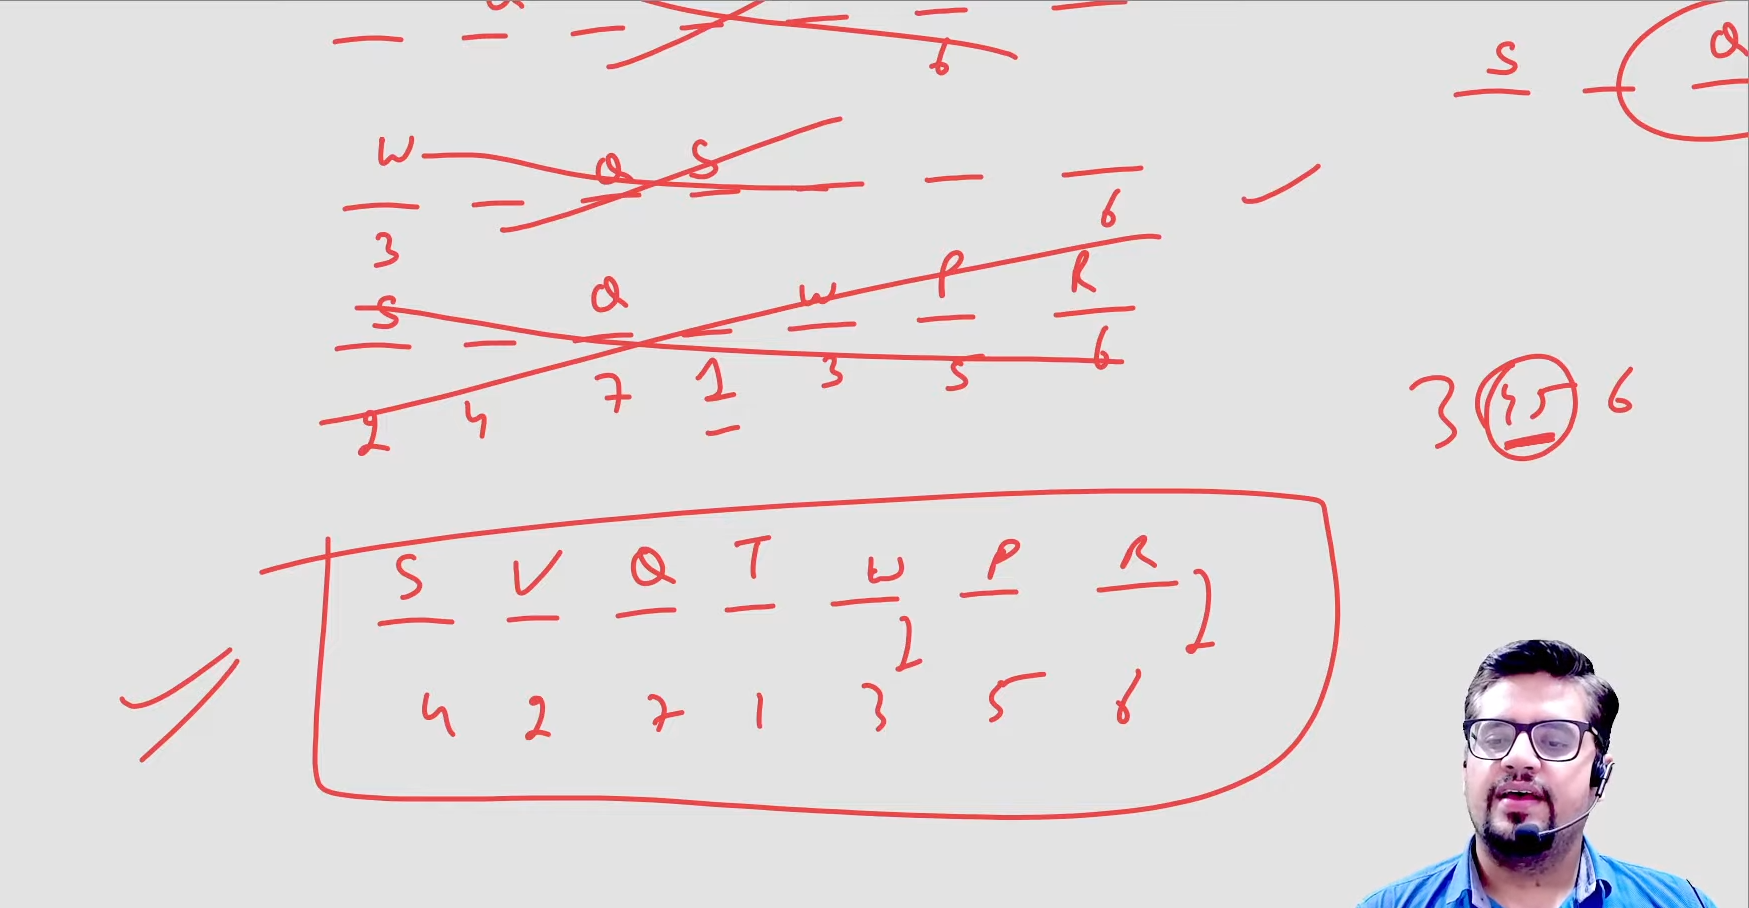 6
S Q
W Q S
3 6
S Q W P R
2 4 7 1 3 5 6
3 45 6
S V Q T W P R
2 2
4 2 7 1 3 5 6